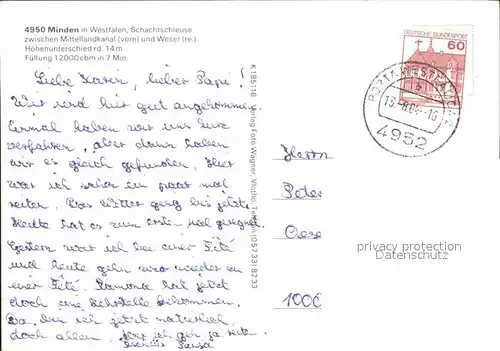 4950 Minden in Westfalen, Schachtschleuse
zwischen Mittellandkanal (vorn) und Weser (re.)
Höhenunterschied rd. 14 m
Füllung 12000 cbm in 7 Min.
Liebe Karin, lieber Papi!
Wir sind hier gut angekommen.
Einmal haben wir uns kurz
verfahren, aber dann haben
wir es gleich gefunden. Hier
war ich schon ein paar mal
reiten. Das Wetter ging bis jetzt.
Heute hat es zum ersten mal geregnet.
Gestern war ich bei einer Fete
und heute gehn wir wieder zu
einer Fete. Ramona hat jetzt
doch eine Lehrstelle bekommen.
Da bin ich jetzt natürlich
doch allein. ich geh ja
K 185116 Verlag Foto Wagner, Vlotho, Telefon (05733) 8233
DEUTSCHE BUNDESPOST
60
PORTA WESTFALICA 2
13.-8.84-16
4952
Herrn
Peter
1000
privacy protection
Datenschutz